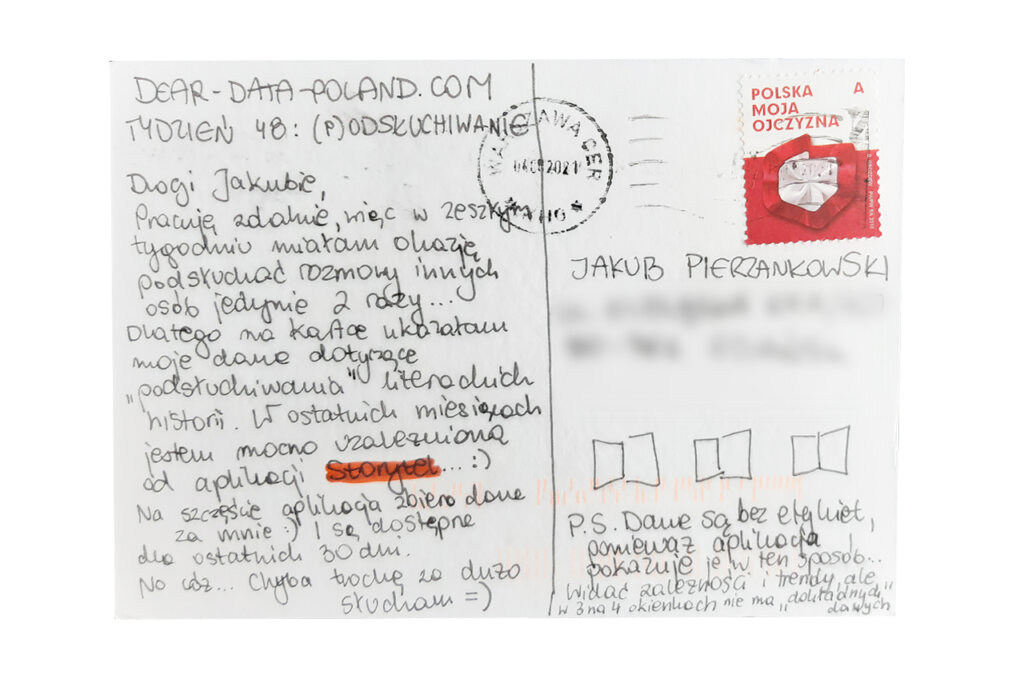 DEAR-DATA-POLAND.COM
TYDZIEŃ 48: (P)ODSŁUCHIWANIE
Drogi Jakubie,
Pracuję zdalnie, więc w zeszłym
tygodniu miałam okazję
podsłuchać rozmowy innych
osób jedynie 2 razy...
Dlatego na kartce ukazałam
moje dane dotyczące
„podsłuchiwania" literackich
historii. W ostatnich miesiącach
jestem mocno uzależniona
od aplikacji Storytel... :)
Na szczęście aplikacja zbiera dane
za mnie :) I są dostępne
dla ostatnich 30 dni.
No cóż... Chyba trochę za dużo
słucham =)
WARSZAWA CER
2021
POLSKA A
MOJA
OJCZYZNA
JAKUB PIERZANKOWSKI
P.S. Dane są bez etykiet,
ponieważ aplikacja
pokazuje je w ten sposób...
Widać zależności i trendy, ale
w 3 na 4 okienkach nie ma „dokładnych"
danych